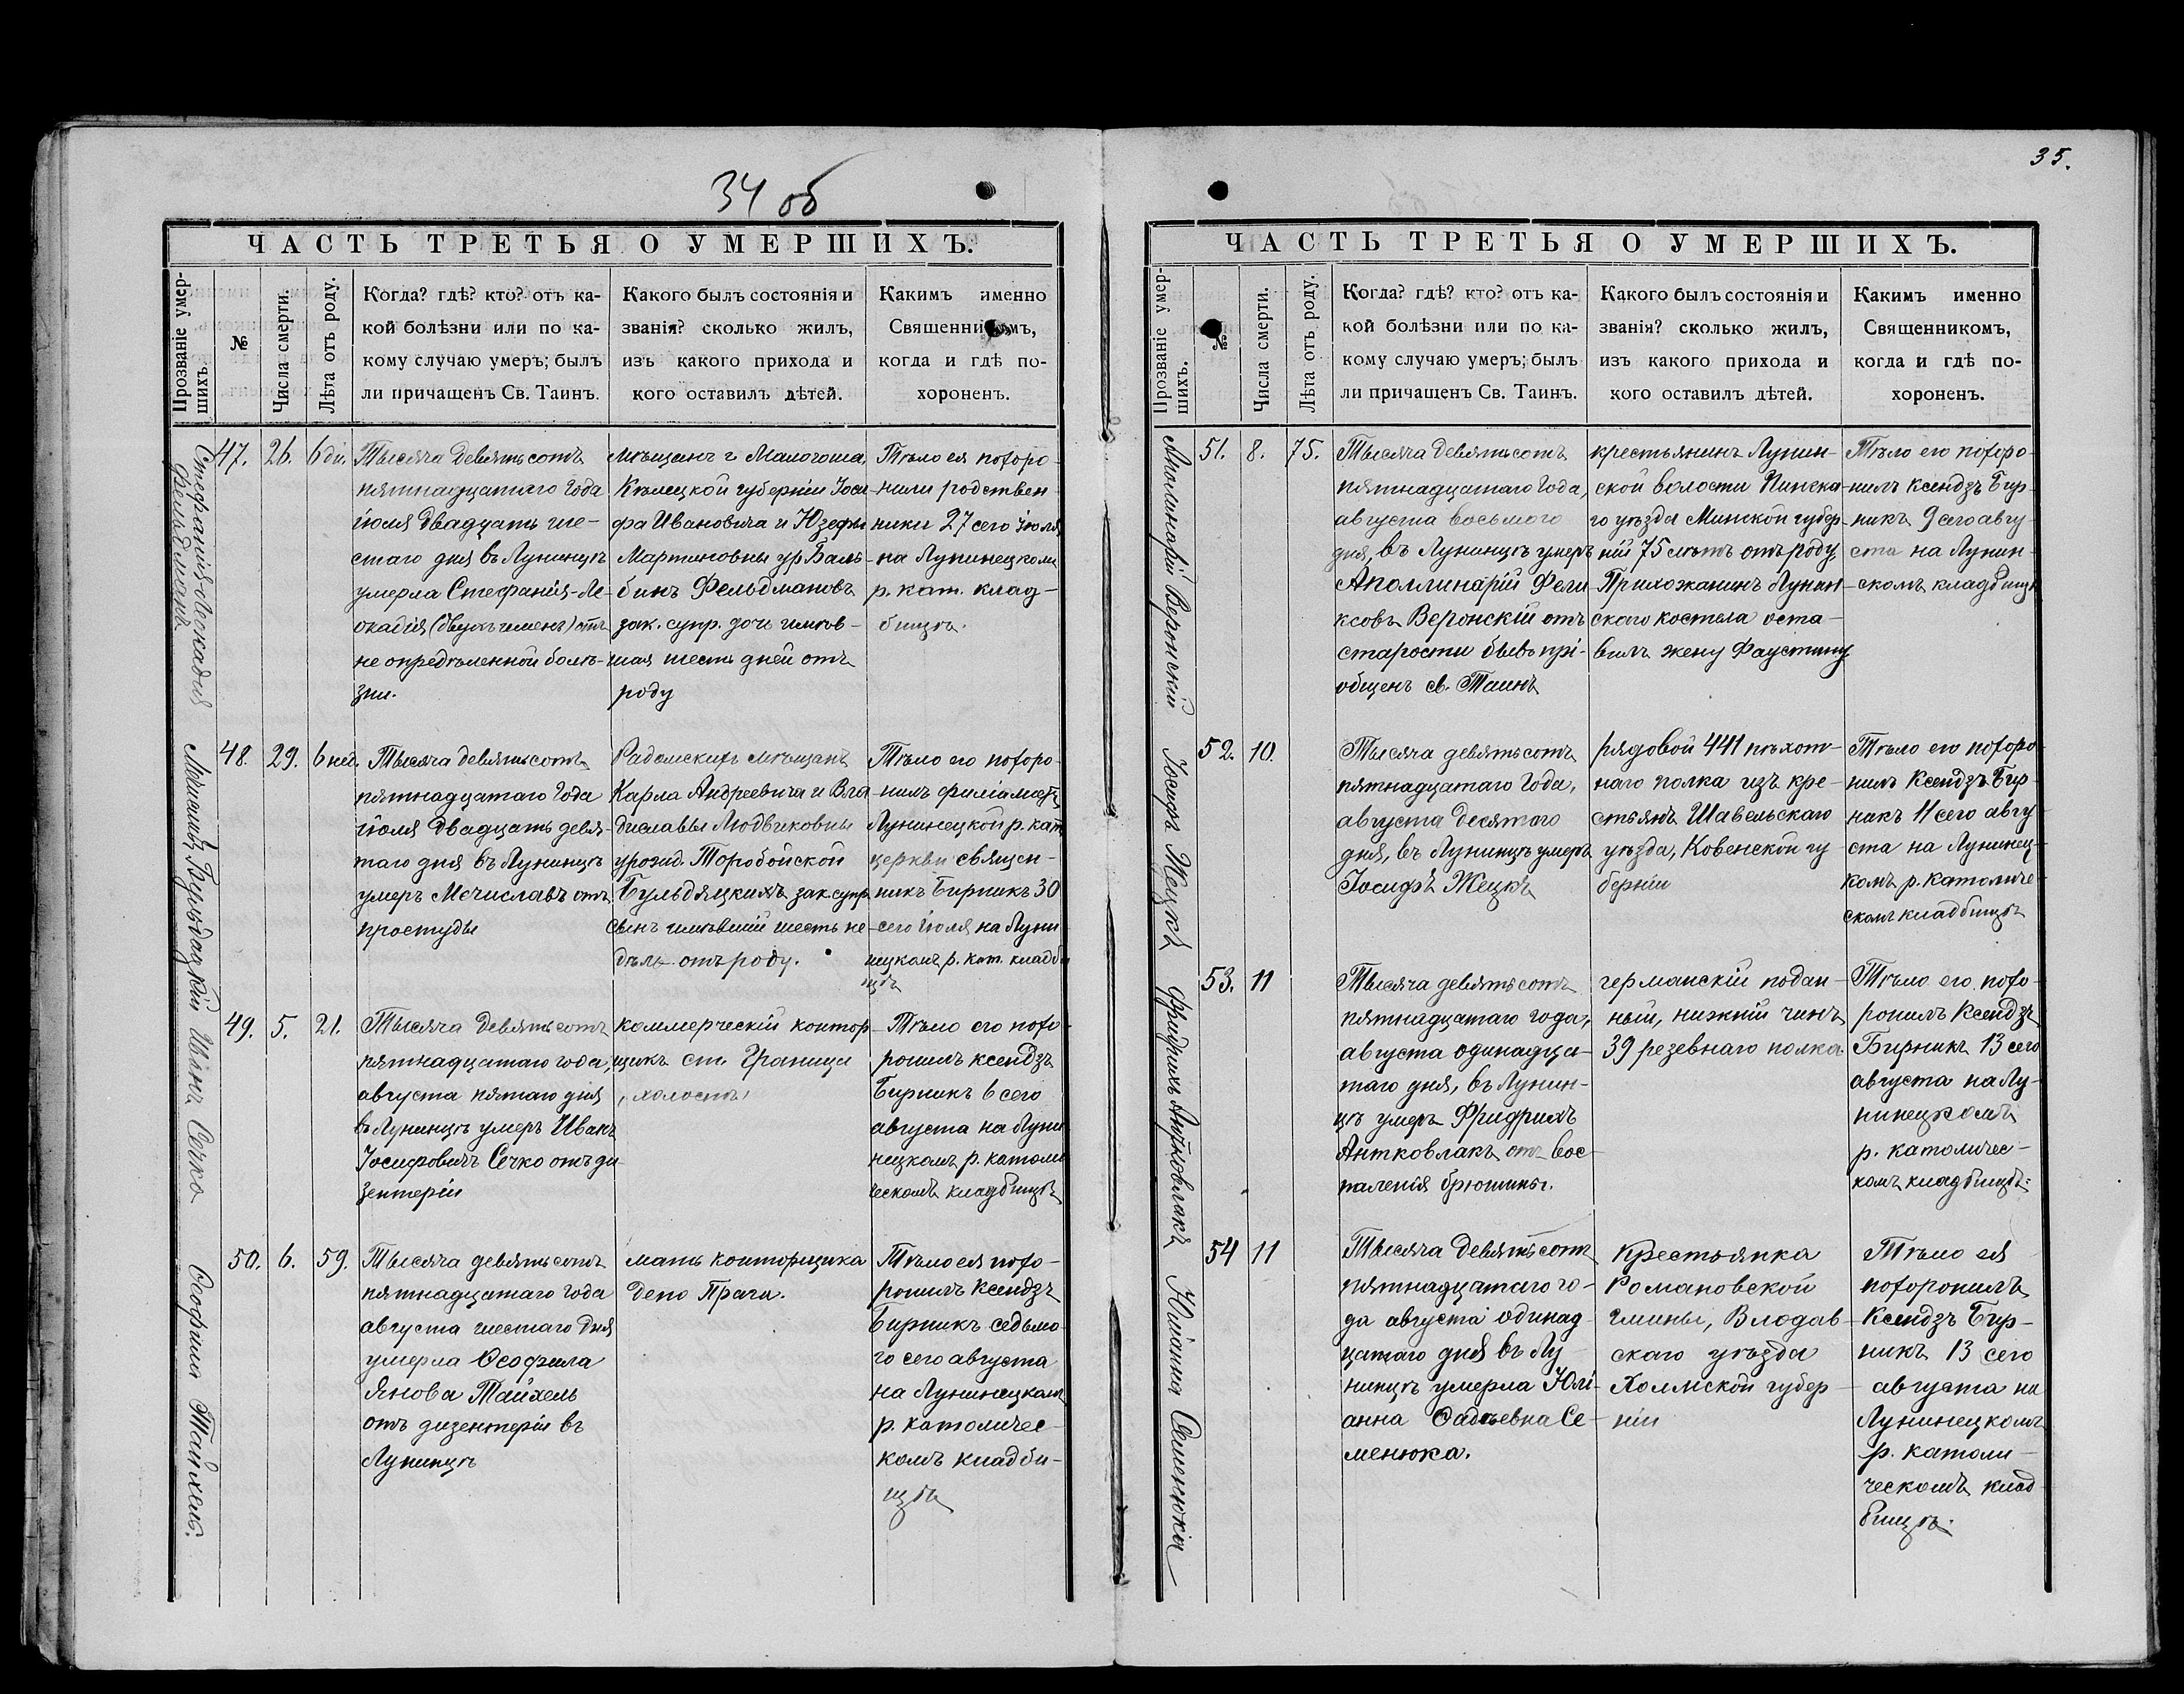 35.
34 об
ЧАСТЬ ТРЕТЬЯ О УМЕРШИХЪ.
Прозваніе умер-
шихъ.
№
Числа смерти.
Лѣта отъ роду.
Когда? гдѣ? кто? отъ ка-
кой болѣзни или по ка-
кому случаю умеръ; былъ
ли причащенъ Св. Таинъ.
Какого былъ состоянія и
званія? сколько жилъ,
изъ какого прихода и
кого оставилъ дѣтей.
Какимъ именно
Священникомъ,
когда и гдѣ по-
хороненъ.
Стефанія-Леокадія
Фельдманъ
47.
26.
6 дн.
Тысяча девятьсотъ
пятнадцатаго года
іюля двадцать ше-
стаго дня въ Лунинцѣ
умерла Стефанія-Ле-
окадія (двухъ именъ) отъ
не опредѣленной болѣ-
зни.
мѣщанъ г. Малогоща,
Кѣлецкой губерніи Іоси
фа Ивановича и Юзефы
Мартиновны ур. Баль-
бинъ Фельдмановъ
зак. супр. дочь имѣв-
шая шесть дней отъ
роду
Тѣло ея похоро-
нили родствен-
ники 27 сего іюля
на Лунинецкомъ
р. кат. клад-
бищѣ.
Мечиславъ Бульдяцкій
48.
29.
6 нед.
Тысяча девятьсотъ
пятнадцатаго года
іюля двадцать девя-
таго дня въ Лунинцѣ
умеръ Мечиславъ отъ
простуды
Радомскихъ мѣщанъ
Карла Андреевича и Вла
диславы Людвиковны
урожд. Торобойской
Бульдяцкихъ зак. супр.
сынъ имѣвшій шесть не-
дѣль отъ роду.
Тѣло его похоро-
нилъ филіальн.
Лунинецкой р. кат.
церкви священ-
никъ Бирникъ 30
сего іюля на Луни
нецкомъ р. кат. кладби
щѣ
Сечко
49.
5.
21.
Тысяча девятьсотъ
пятнадцатаго года,
августа пятаго дня
въ Лунинцѣ умеръ Иванъ
Іосифовичъ Сечко отъ ди-
зентеріи
коммерческій контор-
щикъ ст. Граница
, холостъ
Тѣло его похо-
ронилъ ксендзъ
Бирникъ 6 сего
августа на Луни
нецкомъ р. католи
ческомъ кладбищѣ
Ѳеофила Тайхель.
50.
6.
59.
Тысяча девятьсотъ
пятнадцатаго года
августа шестаго дня
умерла Ѳеофила
Янова Тайхель
отъ дизентеріи въ
Лунинцѣ
мать конторщика
депо Прага.
Тѣло ея похо-
ронилъ Ксендзъ
Бирникъ седьмо-
го сего августа
на Лунинецкомъ
р. католичес-
комъ кладби-
щѣ
ЧАСТЬ ТРЕТЬЯ О УМЕРШИХЪ.
Прозваніе умер-
шихъ.
№
Числа смерти.
Лѣта отъ роду.
Когда? гдѣ? кто? отъ ка-
кой болѣзни или по ка-
кому случаю умеръ; былъ
ли причащенъ Св. Таинъ.
Какого былъ состоянія и
званія? сколько жилъ,
изъ какого прихода и
кого оставилъ дѣтей.
Какимъ именно
Священникомъ,
когда и гдѣ по-
хороненъ.
Аполинарій Веронскій
51.
8.
75.
Тысяча девятьсотъ
пятнадцатаго года,
августа восьмого
дня, въ Лунинцѣ умеръ
Аполлинарій Фели
ксовъ Веронскій отъ
старости бывъ прі-
общенъ св. Таинъ
крестьянинъ Лунин-
ской волости Пинска-
го уѣзда Минской губер-
ніи 75 лѣтъ отъ роду
Прихожанинъ Лунин-
скаго костела оста-
вилъ жену Фаустину
Тѣло его похоро-
нилъ Ксендзъ Бир-
никъ 9 сего авгу-
ста на Лунин-
скомъ кладбищѣ
Іосифъ Жецкъ
52.
10.
Тысяча девятьсотъ
пятнадцатаго года,
августа десятаго
дня, въ Лунинцѣ умеръ
Іосифъ Жецкъ
рядовой 441 пѣхот-
наго полка изъ кре-
стьянъ Шавельскаго
уѣзда, Ковенской гу
берніи
Тѣло его похоро-
нилъ Ксендзъ Бир-
никъ 11 сего авгу-
ста на Лунинец-
комъ р. католиче-
скомъ кладбищѣ
Фридрихъ Антковлакъ
53.
11
Тысяча девятьсотъ
пятнадцатаго года,
августа одинадца-
таго дня, въ Лунин-
цѣ умеръ Фридрихъ
Антковлакъ отъ вос-
паленія брюшины.
германскій подан-
ный, нижній чинъ
39 резевнаго полка
Тѣло его похо-
ронилъ Ксендзъ
Бирникъ 13 сего
августа на Лу-
нинецкомъ
р. католичес-
комъ кладбищѣ.
Юліанна Семенюкія
54
11
Тысяча девятьсотъ
пятнадцатаго го-
да августа одинад
цатаго дня въ Лу
нинцѣ умерла Юлі-
анна Ѳадѣевна Се-
менюка.
Крестьянка
Романовской
гмины, Влодав-
скаго уѣзда
Холмской губер-
ніи
Тѣло ея
похоронилъ
Ксендзъ Бир-
никъ 13 сего
августа на
Лунинецкомъ
р. католи-
ческомъ клад
бищѣ.